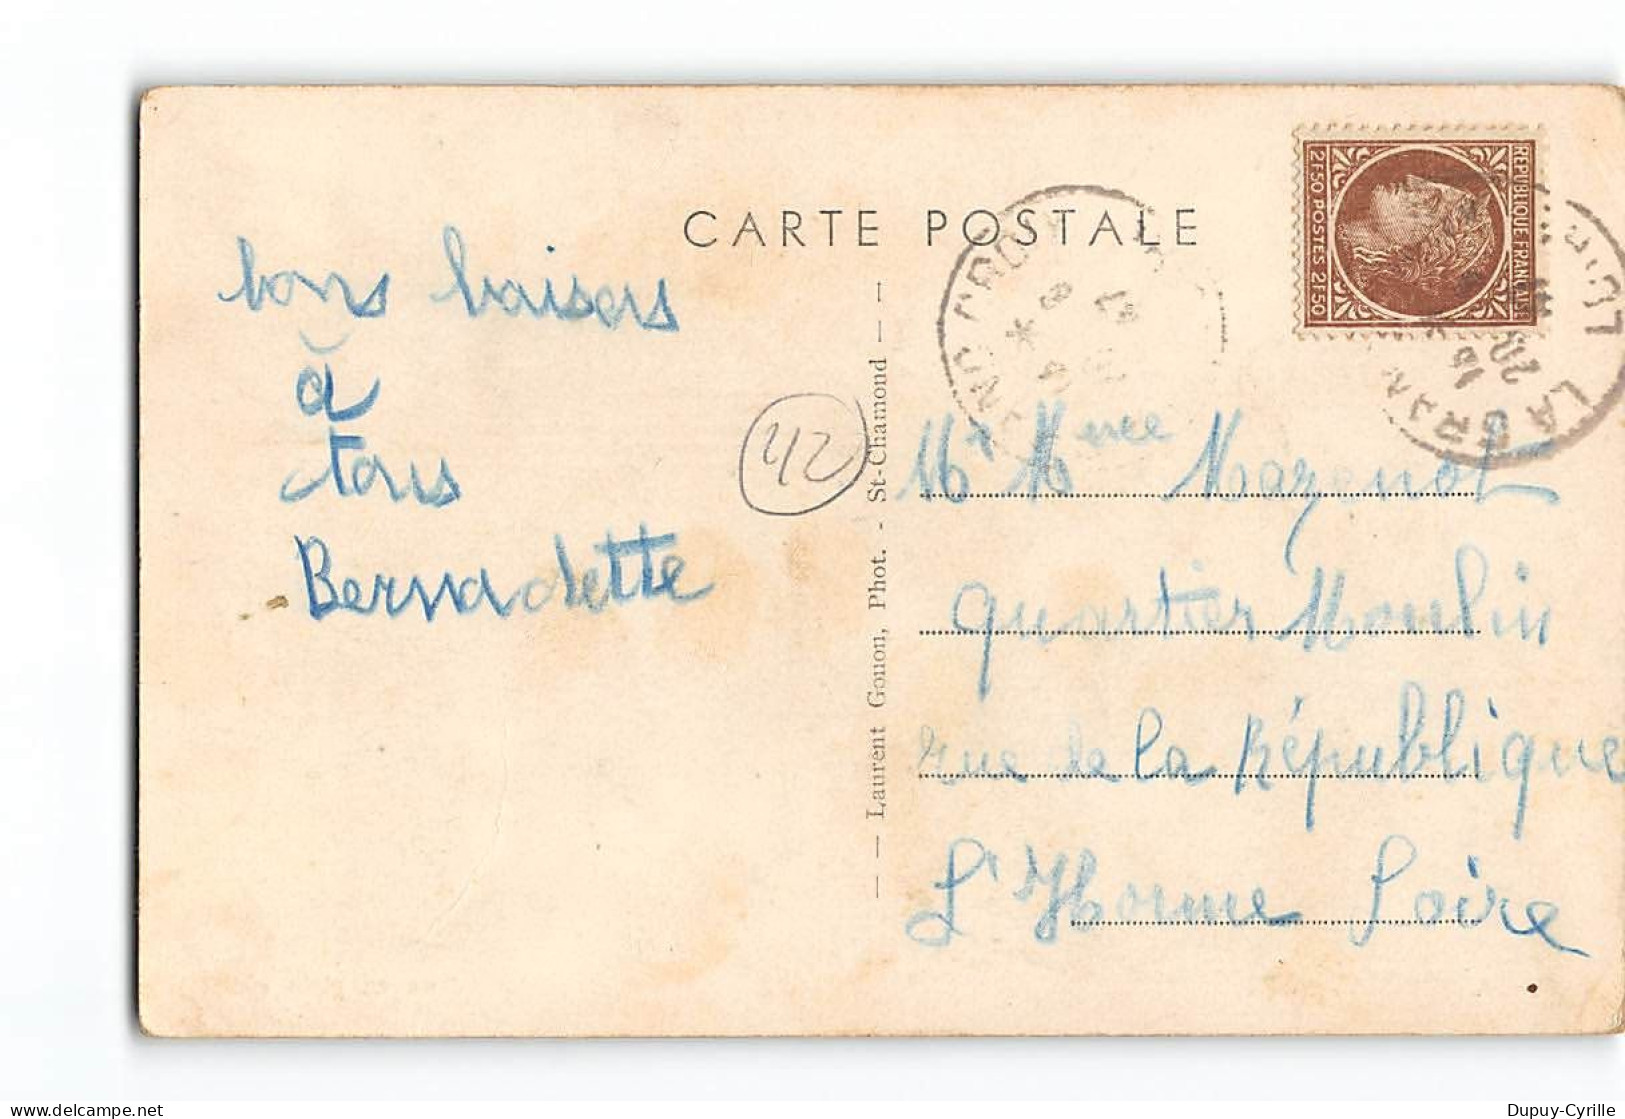 CARTE POSTALE
REPUBLIQUE FRANÇAISE
2F50 POSTES 2F50
bons baisers
à
tous
Bernadette
42
— Laurent Gouon, Phot. - St-Chamond —
Mr Mme Mazenot
quartier Moulin
rue de la République
L'Horme Loire
LA GRAN
Dupuy-Cyrille